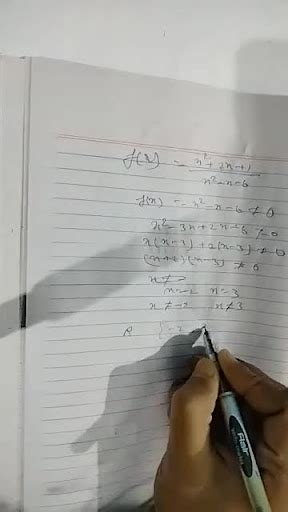 f(x) = x²+2x+1
x²-x-6
f(x) = x²-x-6 ≠ 0
x²-3x+2x-6 ≠ 0
x(x-3)+2(x-3) ≠ 0
(x+2)(x-3) ≠ 0
x ≠
x=-2 x=3
x ≠ -2 x ≠ 3
R {-2
Flair